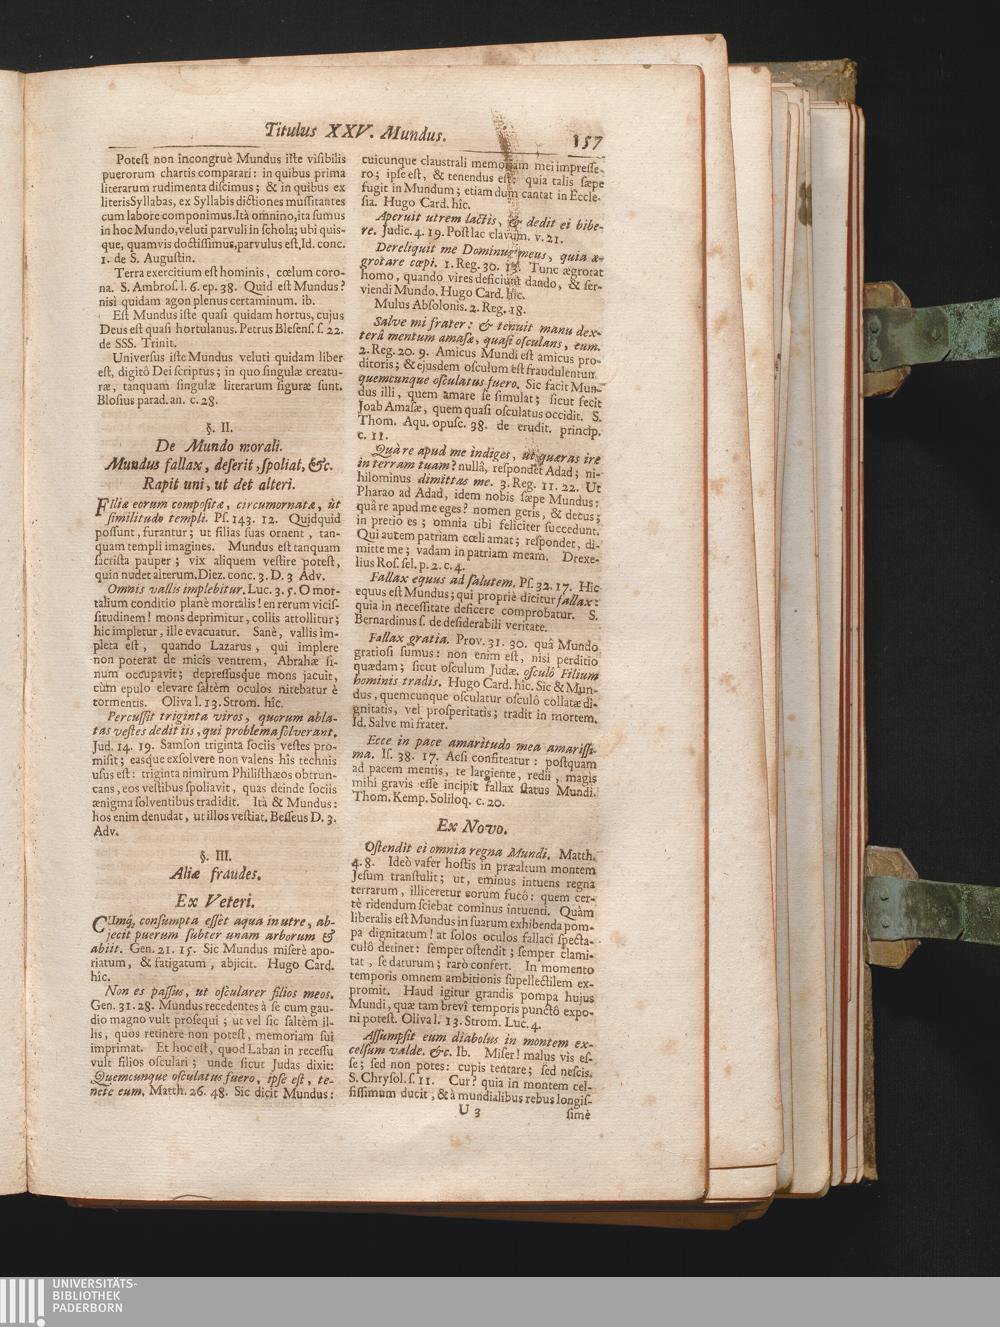 Titulus XXV. Mundus.
157
Potest non incongruè Mundus iste visibilis
puerorum chartis comparari: in quibus prima
literarum rudimenta discimus; & in quibus ex
literisSyllabas, ex Syllabis dictiones mussitantes
cum labore componimus.Ità omnino,ita sumus
in hoc Mundo,veluti parvuli in schola; ubi quis-
que, quamvis doctissimus,parvulus est,Id. conc.
1. de S. Augustin.
Terra exercitium est hominis, cœlum coro-
na. S. Ambros. l. 6. ep. 38. Quid est Mundus?
nisi quidam agon plenus certaminum. ib.
Est Mundus iste quasi quidam hortus, cujus
Deus est quasi hortulanus. Petrus Blesens. s. 22.
de SSS. Trinit.
Universus iste Mundus veluti quidam liber
est, digitô Dei scriptus; in quo singulæ creatu-
ræ, tanquam singulæ literarum figuræ sunt.
Blosius parad. an. c. 28.
§. II.
De Mundo morali.
Mundus fallax, deserit, spoliat, &c.
Rapit uni, ut det alteri.
Filiæ eorum compositæ, circumornatæ, ùt
similitudo templi. Ps. 143. 12. Quidquid
possunt, furantur; ut filias suas ornent, tan-
quam templi imagines. Mundus est tanquam
sacrista pauper; vix aliquem vestire potest,
quin nudet alterum.Diez. conc. 3. D. 3 Adv.
Omnis vallis implebitur. Luc. 3. 5. O mor-
talium conditio planè mortalis! en rerum vicis-
situdinem! mons deprimitur, collis attollitur;
hic impletur, ille evacuatur. Sanè, vallis im-
pleta est, quando Lazarus, qui implere
non poterat de micis ventrem, Abrahæ si-
num occupavit; depressusque mons jacuit,
cùm epulo elevare saltèm oculos nitebatur è
tormentis. Oliva l. 13. Strom. hîc.
Percussit triginta viros, quorum abla-
tas vestes dedit iis, qui problema solverant.
Jud. 14. 19. Samson triginta sociis vestes pro-
misit; easque exsolvere non valens his technis
usus est: triginta nimirum Philisthæos obtrun-
cans, eos vestibus spoliavit, quas deinde sociis
ænigma solventibus tradidit. Ità & Mundus:
hos enim denudat, ut illos vestiat. Besseus D. 3.
Adv.
§. III.
Aliæ fraudes.
Ex Veteri.
CUmq́; consumpta esset aqua in utre, ab-
jecit puerum subter unam arborum &
abiit. Gen. 21. 15. Sic Mundus miserè apo-
riatum, & fatigatum, abjicit. Hugo Card.
hîc.
Non es passus, ut oscularer filios meos.
Gen. 31. 28. Mundus recedentes à se cum gau-
dio magno vult prosequi; ut vel sic saltèm il-
lis, quos retinere non potest, memoriam sui
imprimat. Et hoc est, quod Laban in recessu
vult filios osculari; unde sicut Judas dixit:
Quemcunque osculatus fuero, ipse est, te-
nete eum. Matth. 26. 48. Sic dicit Mundus:
cuicunque claustrali memoriam mei impresse-
ro; ipse est, & tenendus est: quia talis sæpe
fugit in Mundum; etiam dum cantat in Eccle-
sia. Hugo Card. hîc.
Aperuit utrem lactis, & dedit ei bibe-
re. Judic. 4. 19. Post lac clavum. v. 21.
Dereliquit me Dominus meus, quia æ-
grotare cœpi. 1. Reg. 30. 13. Tunc ægrotat
homo, quando vires deficiunt dando, & ser-
viendi Mundo. Hugo Card. hîc.
Mulus Absolonis. 2. Reg. 18.
Salve mi frater: & tenuit manu dex-
terâ mentum amasæ, quasi osculans, eum.
2. Reg. 20. 9. Amicus Mundi est amicus pro-
ditoris; & ejusdem osculum est fraudulentum
quemcunque osculatus fuero. Sic facit Mun-
dus illi, quem amare se simulat; sicut fecit
Joab Amasæ, quem quasi osculatus occidit. S.
Thom. Aqu. opusc. 38. de erudit. princip.
c. 11.
Quàre apud me indiges, ut quæras ire
in terram tuam? nullâ, respondet Adad; ni-
hilominus dimittas me. 3. Reg. 11. 22. Ut
Pharao ad Adad, idem nobis sæpe Mundus:
quàre apud me eges? nomen geris, & decus;
in pretio es; omnia tibi feliciter succedunt.
Qui autem patriam cœli amat; respondet, di-
mitte me; vadam in patriam meam. Drexe-
lius Ros. sel. p. 2. c. 4.
Fallax equus ad salutem. Ps. 32. 17. Hic
equus est Mundus; qui propriè dicitur fallax:
quia in necessitate deficere comprobatur. S.
Bernardinus s. de desiderabili veritate.
Fallax gratia. Prov. 31. 30. quâ Mundo
gratiosi sumus: non enim est, nisi perditio
quædam; sicut osculum Judæ. osculô Filium
hominis tradis. Hugo Card. hîc. Sic & Mun-
dus, quemcunque osculatur osculô collatæ di-
gnitatis, vel prosperitatis; tradit in mortem.
Id. Salve mi frater.
Ecce in pace amaritudo mea amarissi-
ma. Is. 38. 17. Acsi confiteatur: postquam
ad pacem mentis, te largiente, redii, magis
mihi gravis esse incipit fallax status Mundi.
Thom. Kemp. Soliloq. c. 20.
Ex Novo.
Ostendit ei omnia regna Mundi. Matth.
4. 8. Ideò vafer hostis in præaltum montem
Jesum transtulit; ut, eminus intuens regna
terrarum, illiceretur eorum fucô: quem cer-
tè ridendum sciebat cominus intuenti. Quàm
liberalis est Mundus in suarum exhibenda pom-
pa dignitatum! at solos oculos fallaci specta-
culô detinet: semper ostendit; semper clami-
tat, se daturum; rarò confert. In momento
temporis omnem ambitionis supellectilem ex-
promit. Haud igitur grandis pompa hujus
Mundi, quæ tam brevî temporis punctô expo-
ni potest. Oliva l. 13. Strom. Luc. 4.
Assumpsit eum diabolus in montem ex-
celsum valde. &c. Ib. Miser! malus vis es-
se; sed non potes: cupis tentare; sed nescis.
S. Chrysol. s. 11. Cur? quia in montem cel-
sissimum ducit, & à mundialibus rebus longis-
U 3
simè
UNIVERSITÄTS-
BIBLIOTHEK
PADERBORN